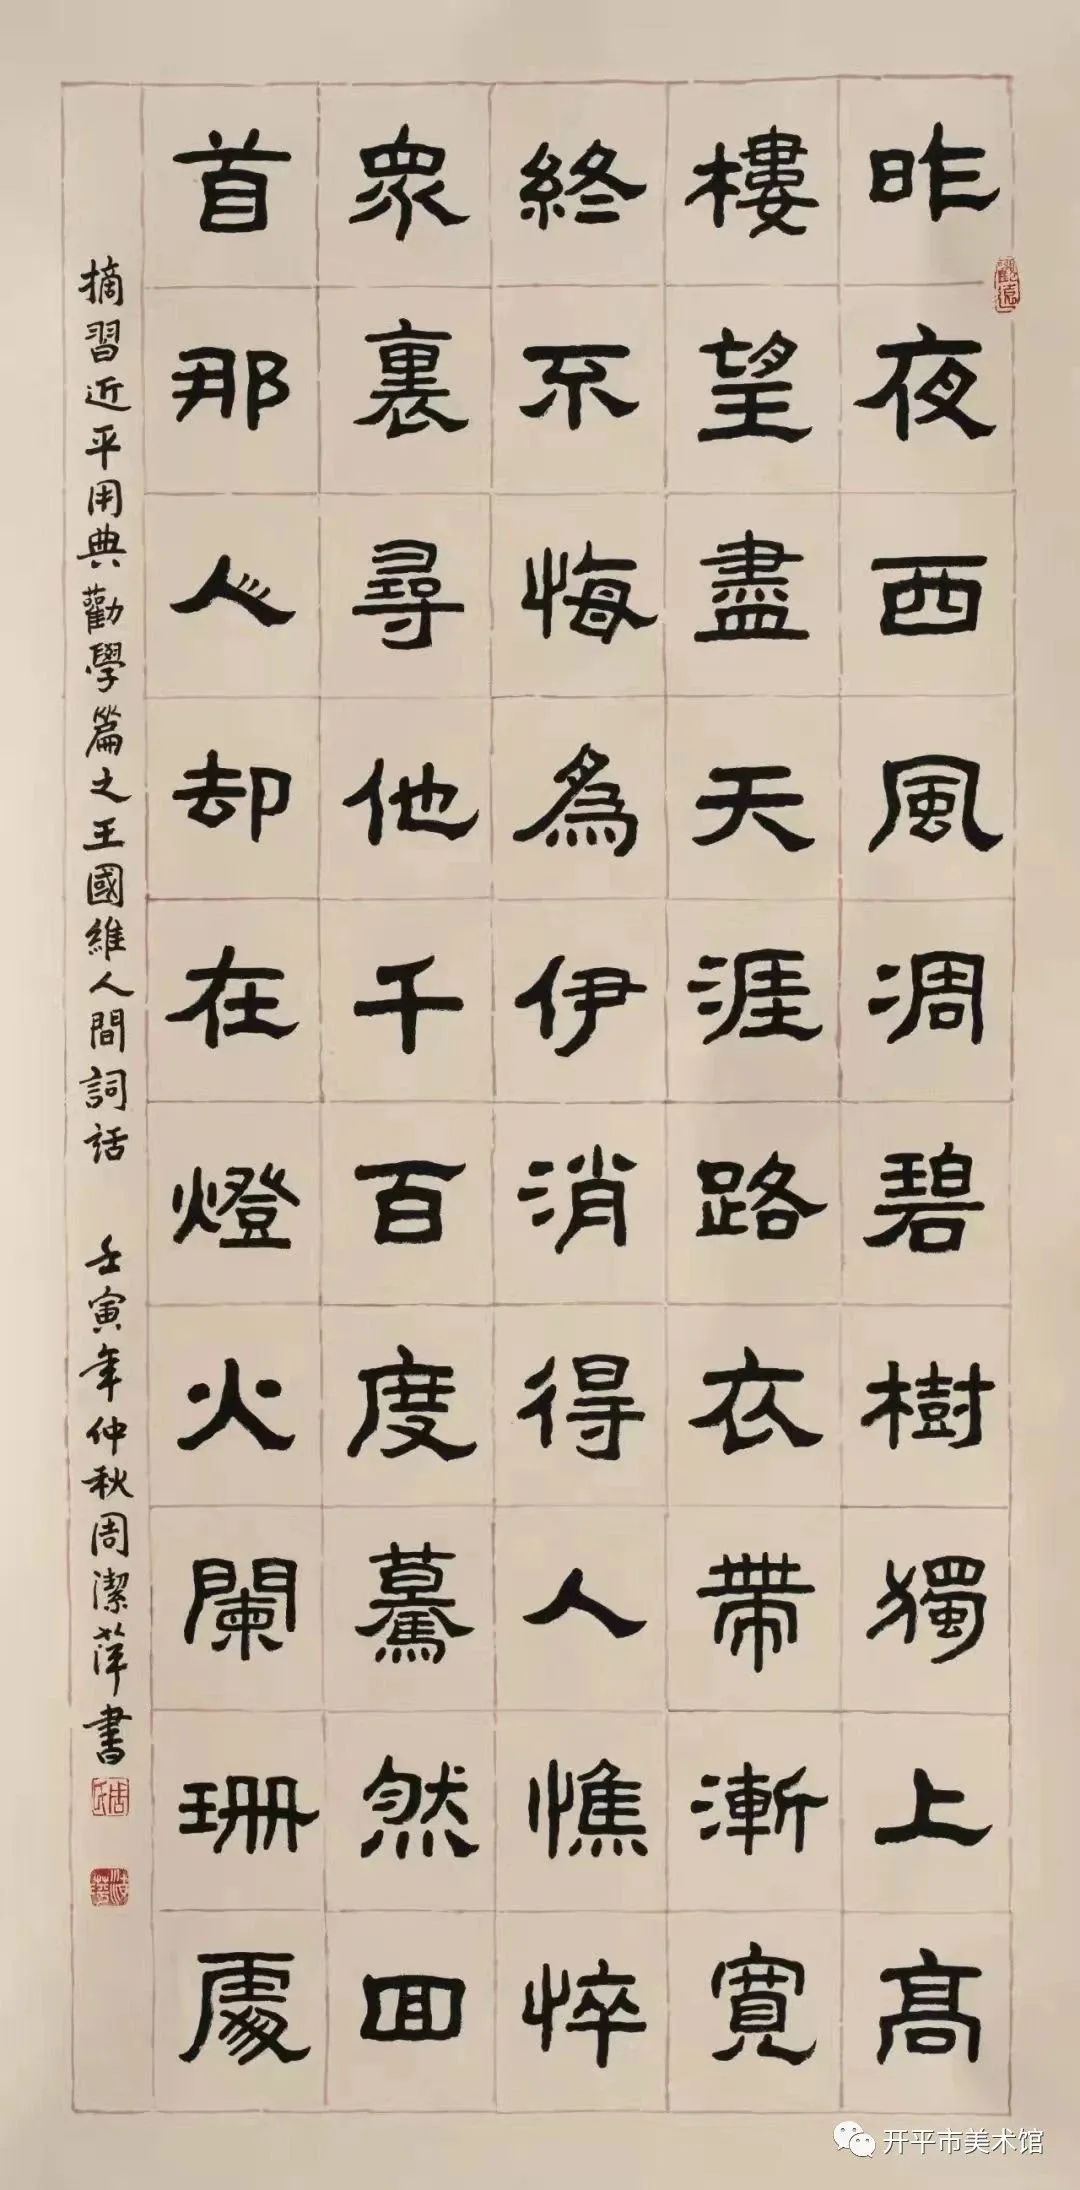 昨夜西風凋碧樹獨上高
樓望盡天涯路衣帶漸寬
終不悔為伊消得人憔悴
眾裏尋他千百度驀然回
首那人却在燈火闌珊處
摘習近平用典勸學篇之王國維人間詞話 壬寅年仲秋周潔萍書
开平市美术馆